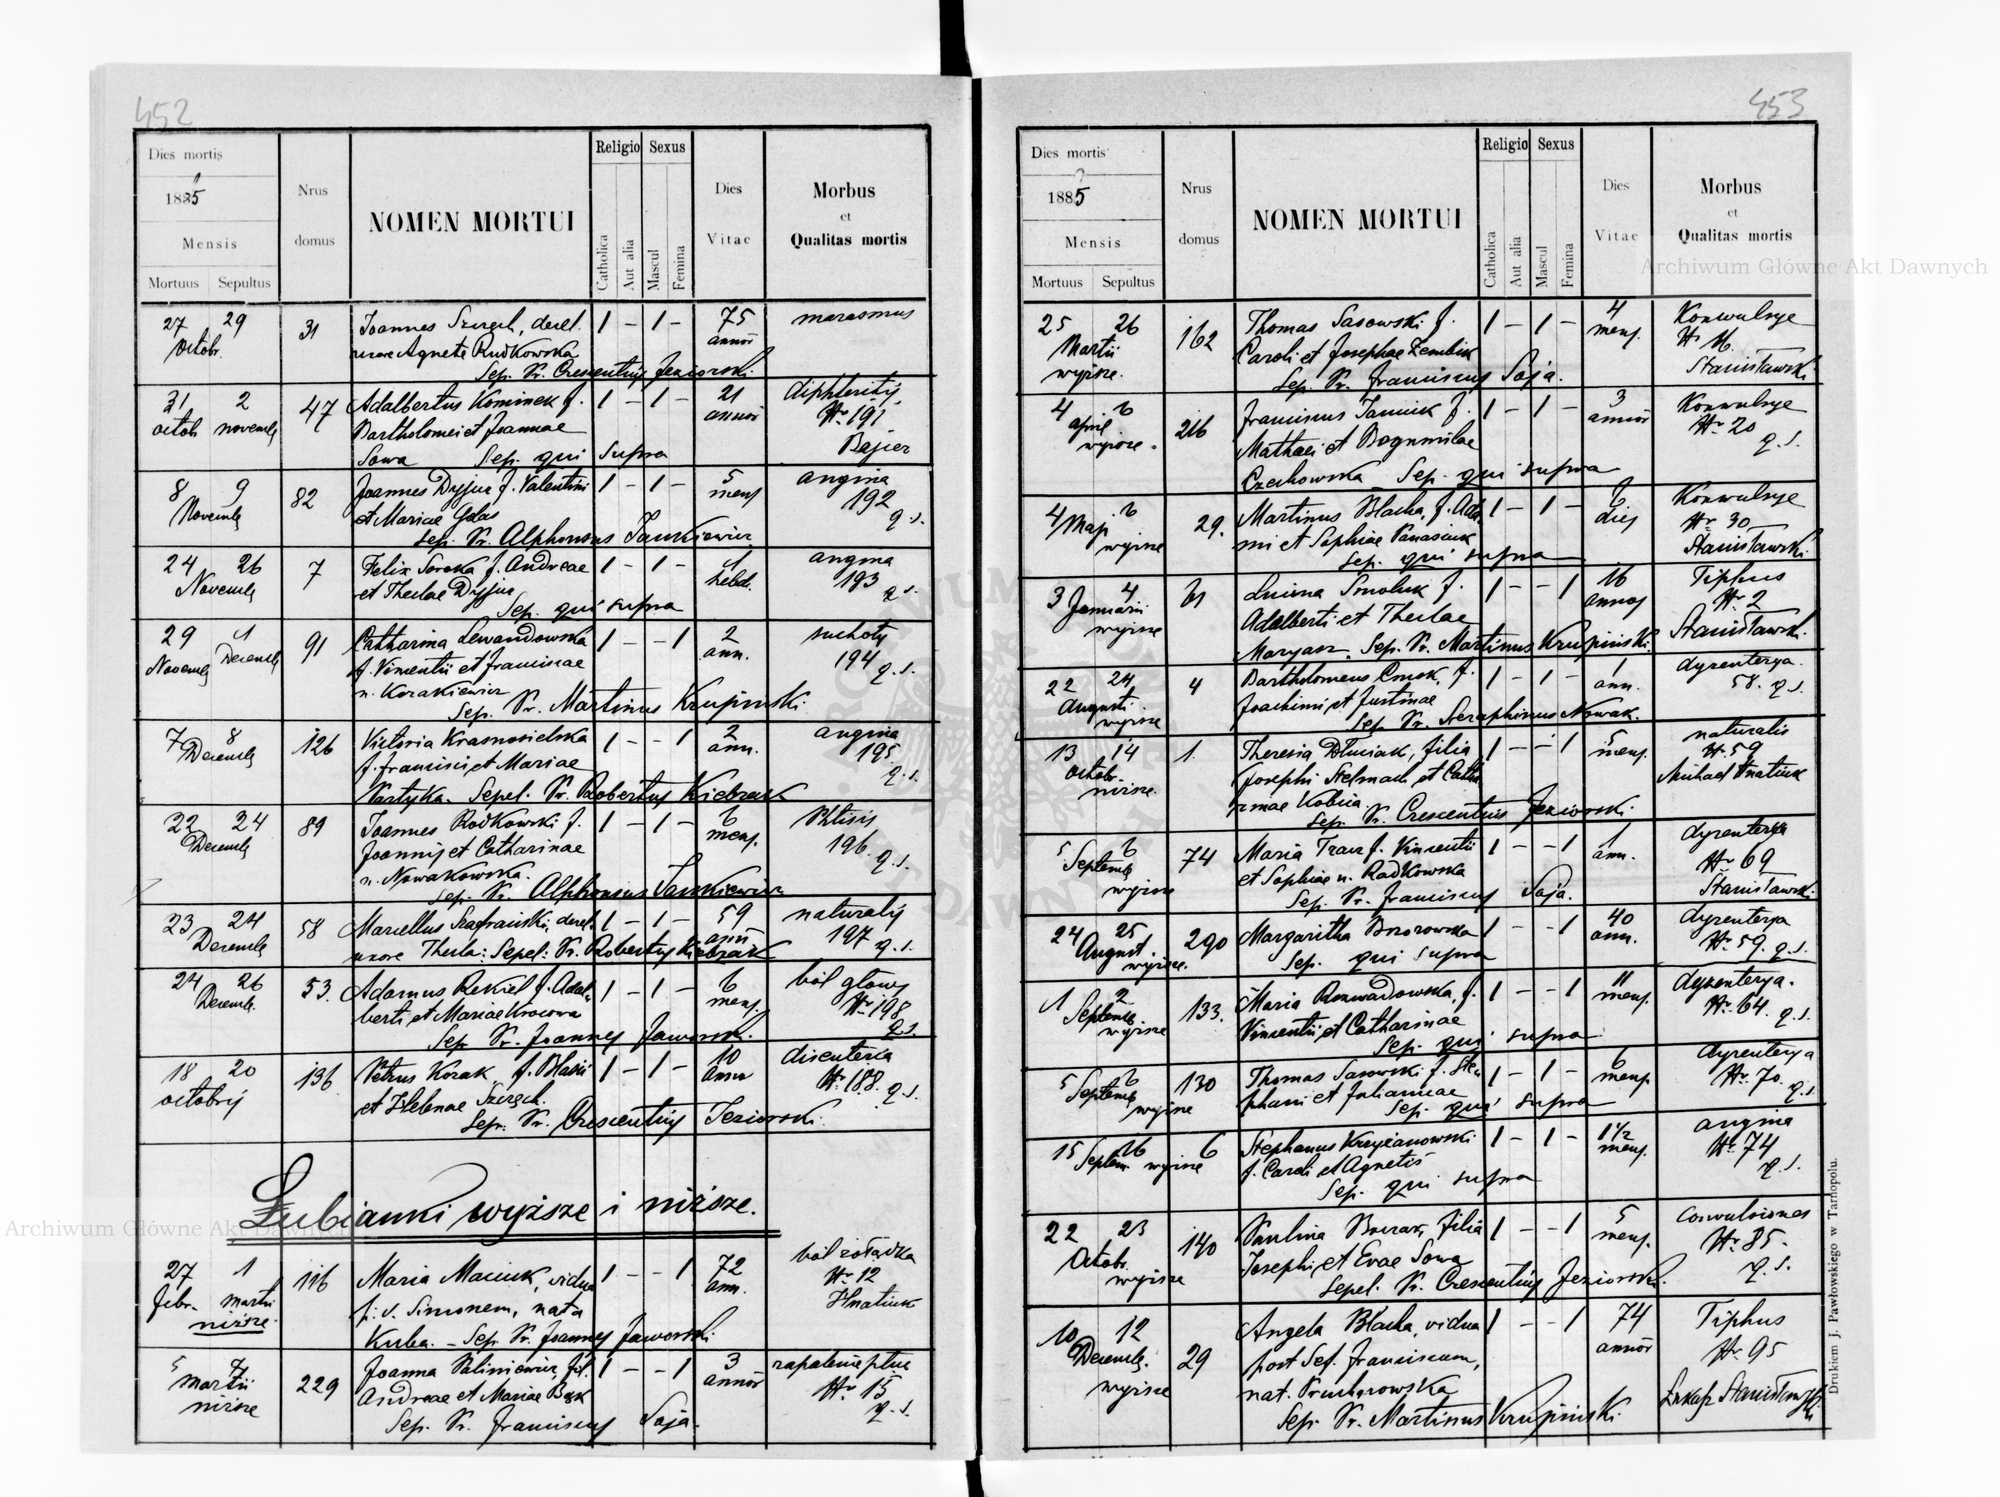 452
Dies mortis
1885
Mensis
Mortuus Sepultus
Nrus
domus
NOMEN MORTUI
Religio Sexus
Catholica
Aut alia
Mascul
Femina
Dies
Vitae
Morbus
et
Qualitas mortis
27 29 31 Joannes Szergel, derel. 1 – 1 – 75 marasmus
Octobr. uxore Agnete Rudkowska annor
Sep. Vr. Crescentius Jeziorski
31 2 47 Adalbertus Kominek f. 1 – 1 – 21 diphteritis
octob novemb Bartholomei et Joannae annor Nr 191
Sowa Sep. qui supra Bajer
8 9 82 Joannes f. Valentini 1 – 1 – 5 angina
Novemb et Mariae mens 192
Sep. Vr. Alphonsus Jankiewicz q. s.
24 26 7 Felix f. Andreae 1 – 1 – 1 angina
Novemb et Theclae hebd. 193
Sep. qui supra q. s.
29 1 91 Catharina Lewandowska 1 – – 1 2 suchoty
Novemb Decemb f. Vincentii et Franciscae ann. 194 q. s.
n. Korakiewicz
Sep. Vr. Martinus Krupinski
7 8 126 Victoria Krasnosielska 1 – – 1 2 angina
Decemb f. Francisci et Mariae ann. 195
Partyka. Sepel. Vr. Robertus Kiebzak q. s.
22 24 89 Joannes Rodkowski f. 1 – 1 – 6 Phtisis
Decemb Joannis et Catharinae mens. 196. q. s.
n. Nowakowska.
Sep. Vr. Alphonsus Jankiewicz
23 24 58 Marcellus Szafrański, derel. 1 – 1 – 59 naturalis
Decemb uxore Thecla: Sepel: Vr. Robertus Kiebzak ann 197 q. s.
24 26 53. Adamus Rekiel f. Adal- 1 – 1 – 6 ból głowy
Decemb. berti et Mariae mens. Nr 198
Sep Vr. Joannes Jaworski. q. s.
18 20 136 Petrus Kozak f. Blasii 1 – 1 – 10 disenteria
octobris et Helenae Szergel. annor Nr 188. q. s.
Sep. Vr. Crescentius Jeziorski.
Łubianki wyższe i niższe.
27 1 116 Maria Maciuk, vidua 1 – – 1 72 ból żołądka
Febr. martii p. d. Simonem, nata ann. Nr 12
niższe. Kuba. – Sep. Vr. Joannes Jaworski Hnatiuk
5 7 229 Joanna Paliniewicz, fil. 1 – – 1 3 zapalenie płuc
martii Andreae et Mariae Bąk annor Nr 15
niższe Sep. Vr. Franciscus Soja. q. s.
453
Dies mortis
1885
Mensis
Mortuus Sepultus
Nrus
domus
NOMEN MORTUI
Religio Sexus
Catholica
Aut alia
Mascul
Femina
Dies
Vitae
Morbus
et
Qualitas mortis
25 26 162 Thomas Sasowski f. 1 – 1 – 4 Konwulsye
Martii Caroli et Josephae Zembik mens. Nr 16.
wyższe. Sep. Vr. Franciscus Soja. Stanisławski
4 6 216 Franciscus Janiuk f. 1 – 1 – 3 Konwulsye
april Mathaei et Bogumilae annor Nr 20
wyższe. Czechowska Sep. qui supra q. s.
4 6 29. Martinus Blacha, f. Ada- 1 – 1 – 6 Konwulsye
Maji mi et Sophiae Panasiuk dies Nr 30
wyższe Sep. qui supra Stanisławski
3 4 61 Lucina Smoluk f. 1 – – 1 16 Tiphus
Januarii Adalberti et Theclae annos Nr 2
wyższe Maryasz. Sep. Vr. Martinus Krupinski. Stanisławski.
22 24 4 Bartholomeus f. 1 – 1 – 1 dyzenterya.
Augusti Joachimi et Justinae ann. 58. q. s.
wyższe Sep. Vr. Seraphinus Nowak.
13 14 1. Theresia Dłuciak, filia 1 – – 1 5 naturalis
Octobr. Josephi Stelmach et Catha- mens. Nr 59
niższe. rinae Kobica. Michael Hnatiuk
Sep. Vr. Crescentius Jeziorski.
5 6 74 Maria Tracz f. Vincentii 1 – – 1 1 dyzenterya
Septemb et Sophiae n. Radkowska ann. Nr 69
wyższe Sep. Vr. Franciscus Soja. Stanisławski
24 25 290 Margaritha Bozorowska 1 – – 1 40 dyzenterya
August Sep. qui supra ann. Nr 59. q. s.
wyższe.
1 2 133. Maria Rozwadowska, f. 1 – – 1 11 dyzenterya.
Septemb Vincentii et Catharinae mens. Nr 64. q. s.
wyższe Sep. qui supra
5 6 130 Thomas Sasowski f. Ste- 1 – 1 – 6 dyzenterya
Septemb phani et Juliannae mens. Nr 70. q. s.
wyższe Sep. qui supra
15 16 6 Stephanus Krzyżanowski 1 – 1 – 1 1/2 angina
Septem. wyższe f. Caroli et Agnetis mens. Nr 74
Sep. qui supra q. s.
22 23 140 Paulina Borzak, filia 1 – – 1 5 Convulsiones
Octobr. Josephi, et Evae Sowa mens. Nr 85.
wyższe Sepel. Vr. Crescentius Jeziorski. q. s.
10 12 29 Angela Blacha, vidua 1 – – 1 74 Tiphus
Decemb. post Def. Franciscum, annor Nr 95
wyższe nat. Pruchorowska Łukasz Stanisławski
Sep. Vr. Martinus Krupinski.
Drukiem J. Pawłowskiego w Tarnopolu.
Archiwum Główne Akt Dawnych
Archiwum Główne Akt Dawnych